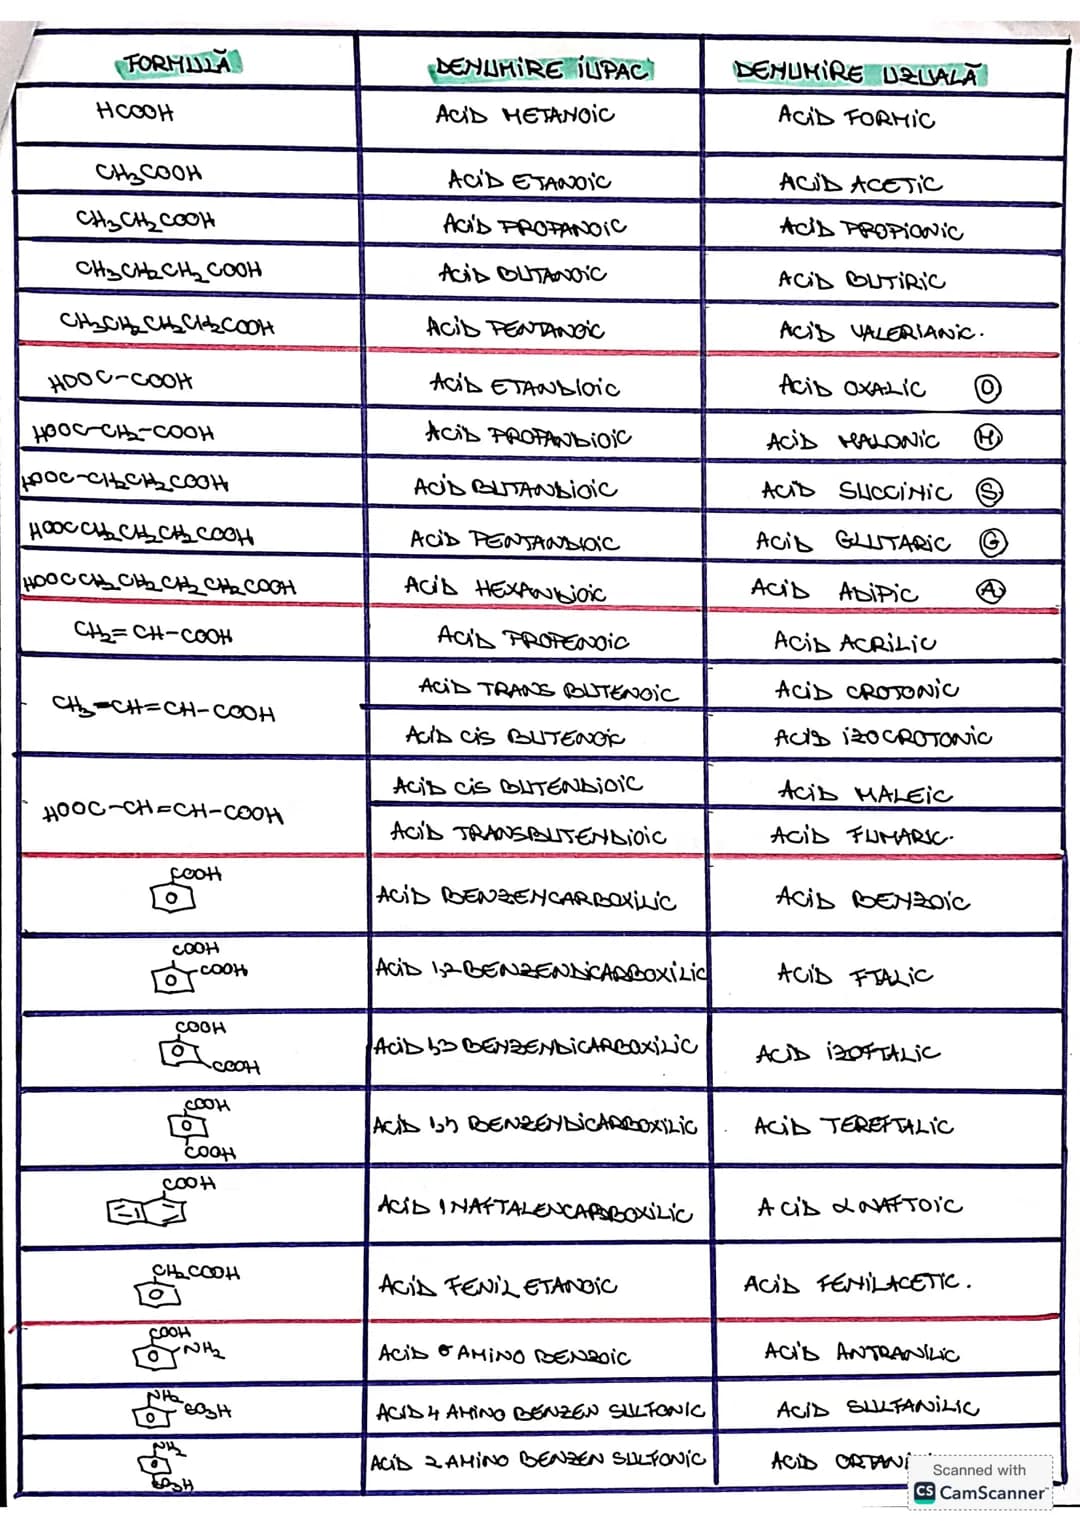 FORMULĂ DENUMIRE IUPAC DENUMIRE UZUALĂ
HCOOH ACID METANOIC ACID FORMIC
CH3COOH ACID ETANOIC ACID ACETIC
CH3CH2COOH ACID PROPANOIC ACID PROPIONIC
CH3CH2CH2COOH ACID BUTANOIC ACID BUTIRIC
CH3CH2CH2CH2COOH ACID PENTANOIC ACID VALERIANIC.
HOOC-COOH ACID ETANDIOIC ACID OXALIC O
HOOC-CH2-COOH ACID PROPANDIOIC ACID MALONIC M
HOOC-CH2CH2COOH ACID BUTANDIOIC ACID SUCCINIC S
HOOCCH2CH2CH2COOH ACID PENTANDIOIC ACID GLUTARIC G
HOOCCH2CH2CH2CH2COOH ACID HEXANDIOIC ACID ADIPIC A
CH2=CH-COOH ACID PROPENOIC ACID ACRILIC
CH3-CH=CH-COOH ACID TRANS BUTENOIC ACID CROTONIC
ACID CIS BUTENOIC ACID IZOCROTONIC
HOOC-CH=CH-COOH ACID CIS BUTENDIOIC ACID MALEIC
ACID TRANSBUTENDIOIC ACID FUMARIC.
COOH
ACID BENZENCARBOXILIC ACID BENZOIC
COOH
-COOH ACID 1,2 BENZENDICARBOXILIC ACID FTALIC
COOH
COOH ACID 1,3 BENZENDICARBOXILIC ACID IZOFTALIC
COOH
ACID 1,4 BENZENDICARBOXILIC ACID TEREFTALIC
COOH
COOH
ACID 1 NAFTALENCARBOXILIC ACID α NAFTOIC
CH2COOH
ACID FENIL ETANOIC ACID FENILACETIC.
COOH
NH2 ACID O AMINO BENZOIC ACID ANTRANILIC
NH2
SO3H ACID 4 AMINO BENZEN SULFONIC ACID SULFANILIC
NH2
ACID 2 AMINO BENZEN SULFONIC ACID ORTANI
SO3H
Scanned with
CS CamScanner